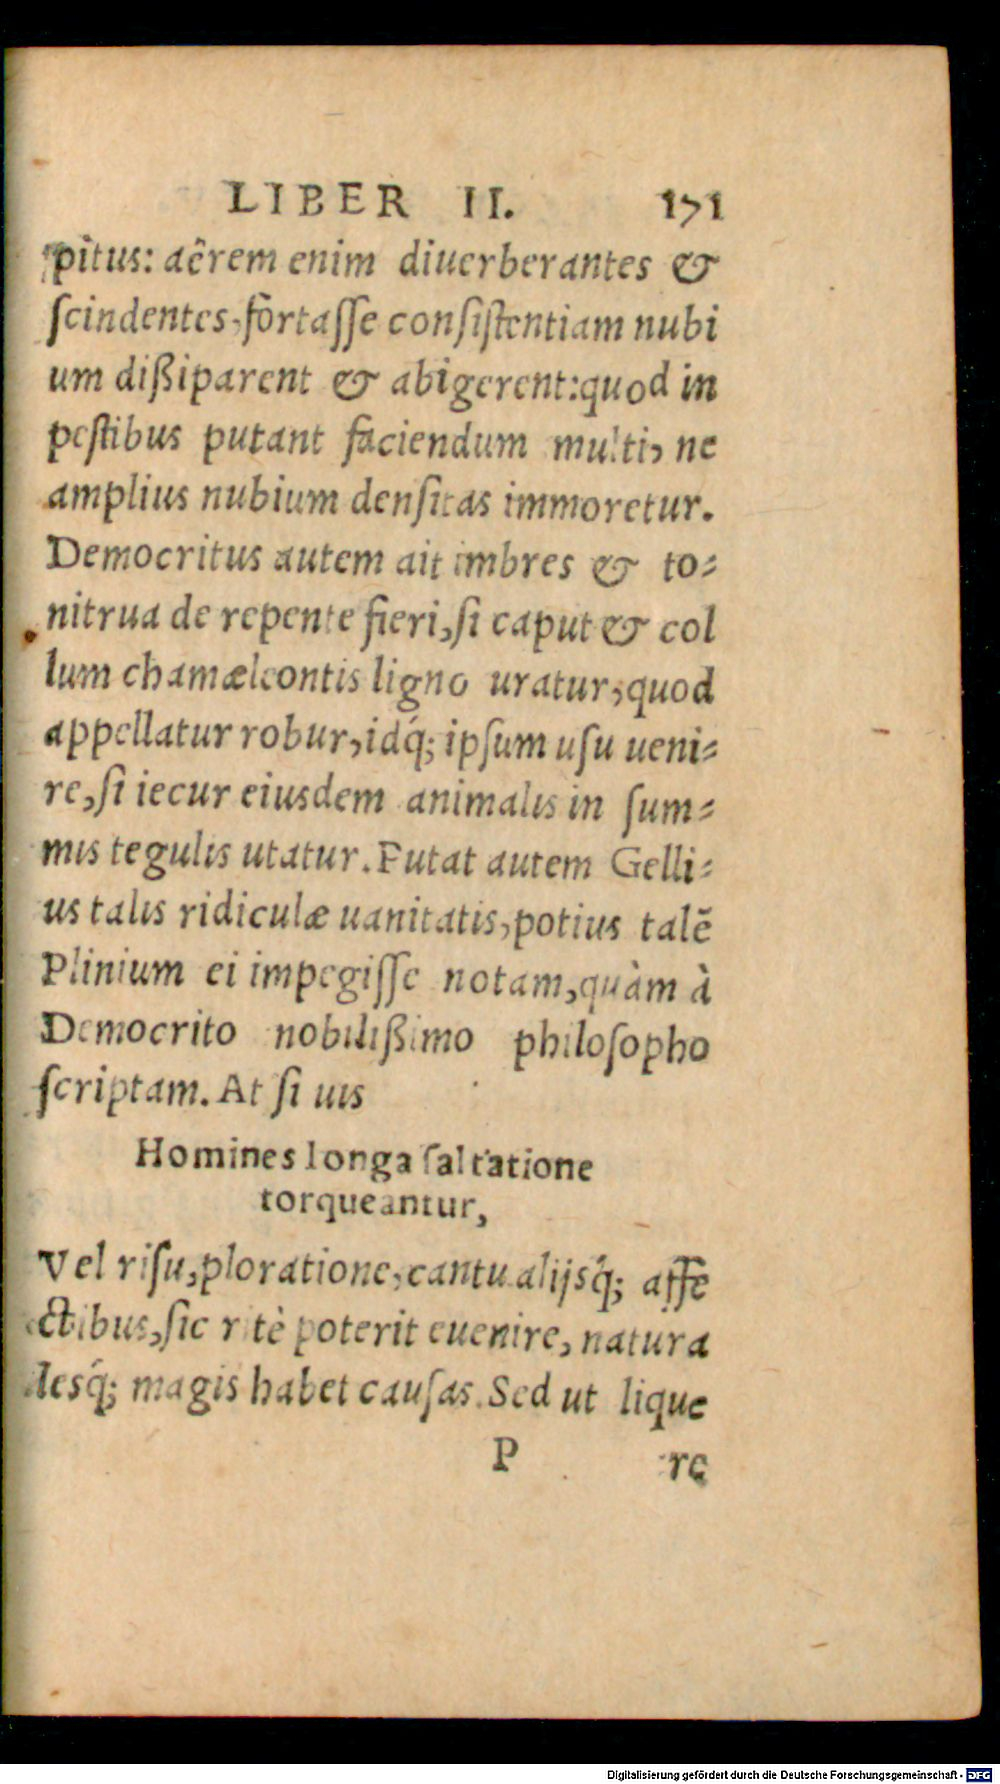 LIBER II. 171
pitus: aêrem enim diuerberantes &
ſcindentes, fortaſſe conſiſtentiam nubi
um dißiparent & abigerent: quod in
peſtibus putant faciendum multi, ne
amplius nubium denſitas immoretur.
Democritus autem ait imbres & to-
nitrua de repente fieri, ſi caput & col
lum chamæleontis ligno uratur, quod
appellatur robur, idq́; ipſum uſu ueni-
re, ſi iecur eiusdem animalis in ſum-
mis tegulis utatur. Putat autem Gelli-
us talis ridiculæ uanitatis, potius talē
Plinium ei impegiſſe notam, quàm à
Democrito nobilißimo philoſopho
ſcriptam. At ſi uis
Homines longa ſaltatione
torqueantur,
Vel riſu, ploratione, cantu alijsq́; affe
ctibus, ſic ritè poterit euenire, natura
lesq́; magis habet cauſas. Sed ut lique
P re
Digitalisierung gefördert durch die Deutsche Forschungsgemeinschaft - DFG